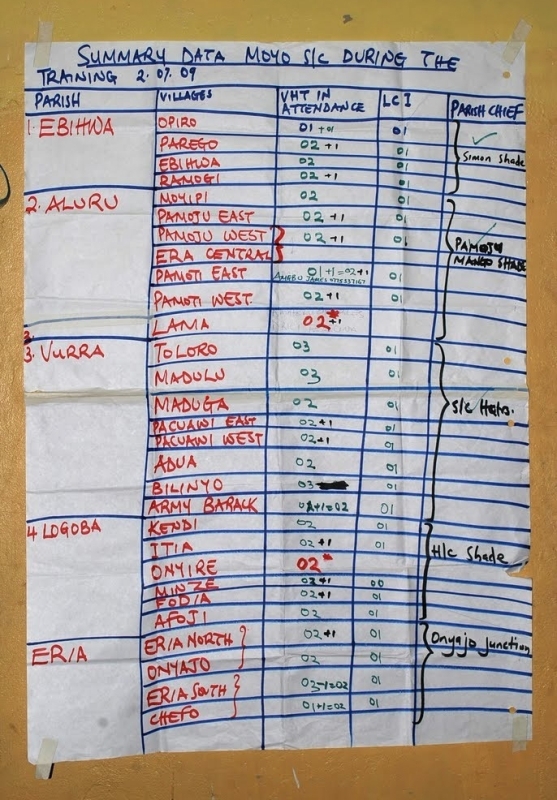 SUMMARY DATA MOYO S/C DURING THE
TRAINING 2.07.09
PARISH VILLAGES VHT IN ATTENDANCE LC I PARISH CHIEF
1. EBIHWA OPIRO 01 +01 01
PAREGO 02 +1 01
EBIHWA 02 01 Simon Shade
RAMOGI 02 +1 01
2. ALURU MOYIPI 02 01
PAMOJU EAST 02 +1 01
PAMOJU WEST 02 +1 01 PAMOJU
ERA CENTRAL MANGO SHADE
PAMOTI EAST 01+1=02+1 01
PAMOTI WEST 02 +1 01
LAMA 02* +1
3. VURRA TOLORO 03 01
MADULU 03 01
MADUGA 02 01 S/c Hqtrs.
PACUAWI EAST 02 +1 01
PACUAWI WEST 02 +1 01
ADUA 02 01
BILINYO 03 01
ARMY BARACK +1=02 01
4 LOGOBA KENDI 02 01
ITIA 02 +1 01 H/c Shade
ONYIRE 02*
MINZE 02 +1 00
FODIA 02 +1 01
AFOJI 02 01
ERIA ERIA NORTH 02 +1 01 Onyajo Junction
ONYAJO 02 01
ERIA SOUTH 03-1=02 01
CHEFO 01+1=02 01